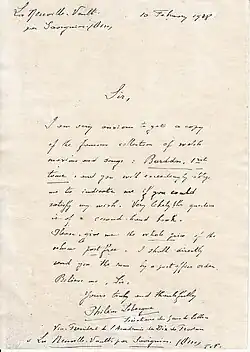 La Neuville-Vault
par Savignies (Oise)
10 February 1928
Sir,
I am very anxious to get a copy
of the famous collection of welsh
maxims and songs: Barddas, 2nd
tome; and you will exceedingly oblige
me to indicate me if you could
satisfy my wish. Very likely the question
is of a second hand book.
Please, give me the whole price of the
volume post free. I shall directly
send you the sum by a post office order.
Believe me, Sir,
Yours truly and thankfully
Philéas Lebesgue
Vice Président de l'Académie
à La Neuville-Vault, par Savignies (Oise)